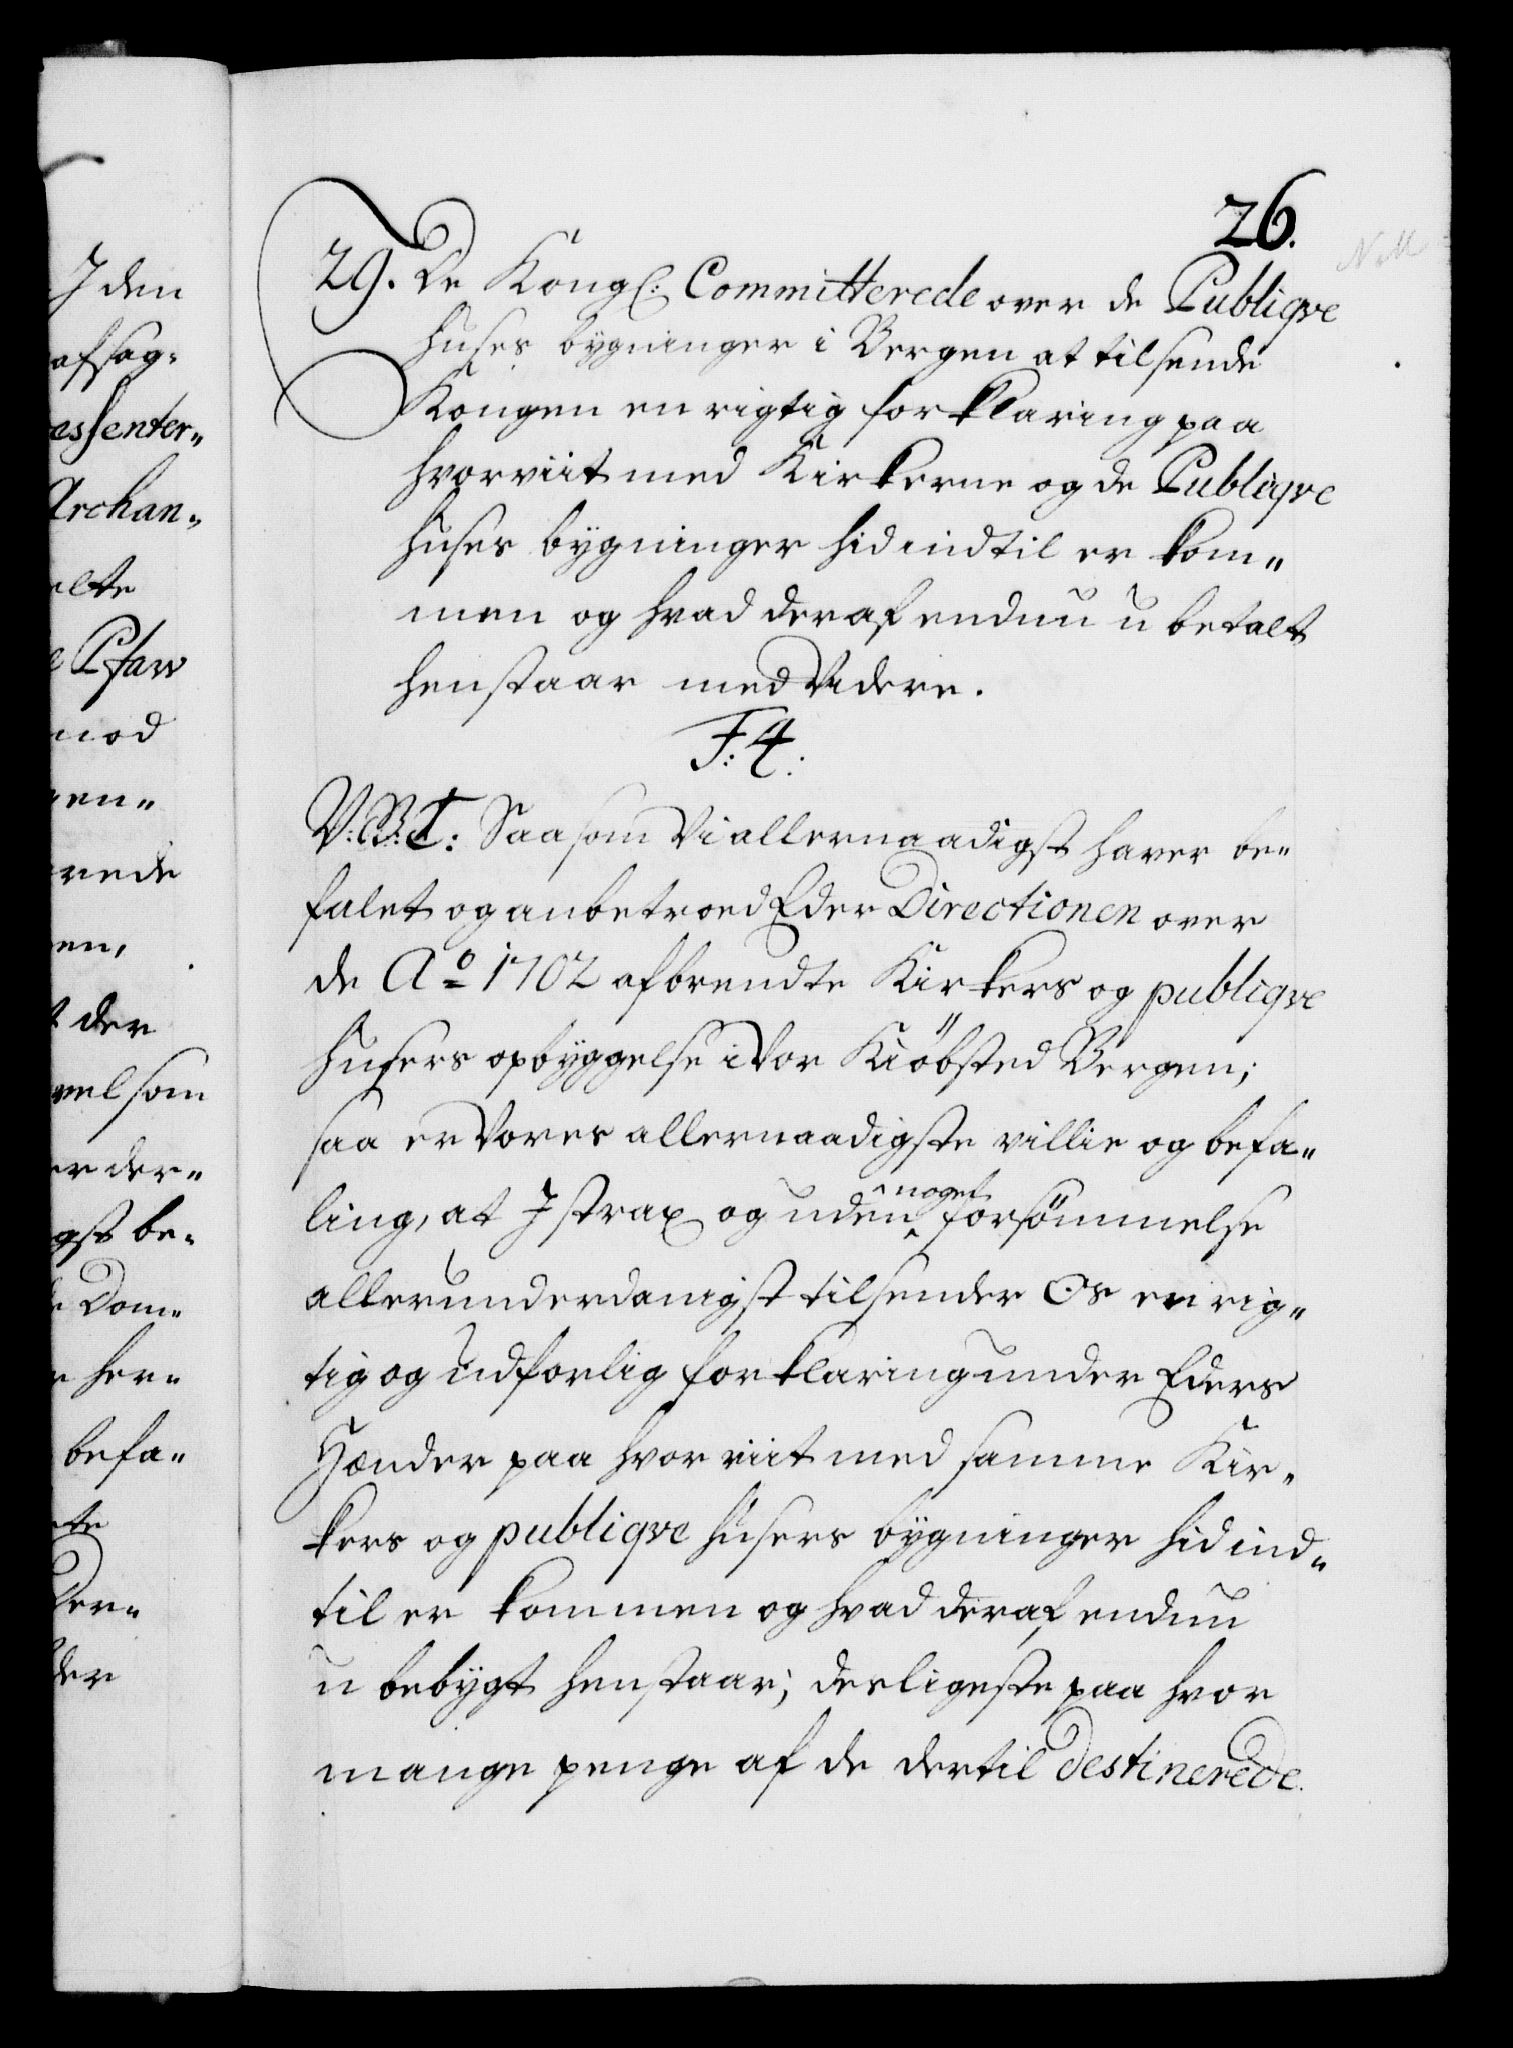 26.
29. De Kongl: Committerede over de Publiqve
huses bygninger i Bergen at tilsende
Kongen en rigtig forklaring paa
hvorviit med Kirkerne og de Publiqve
huses bygninger hidindtil er kom„
men og hvad deraf endnu u betalt
henstaar med Videre.
F: 4.
V: G: T: Saasom Vi allernaadigst haver be„
falet og anbetroed Eder Directionen over
de Ao 1702 afbrendte Kirkers og publiqve
husers opbyggelse i Vor Kiöbsted Bergen;
saa er Vores allernaadigste villie og befa„
ling, at I strax og uden noget forsömmelse
allerunderdanigst tilsender Os en rig„
tig og udforlig forklaring under Eders
Hænder paa hvor viit med samme Kir„
kers og publiqve husers bygninger hid ind„
til er kommen og hvad deraf endnu
u bebygt henstaar; desligeste paa hvor
mange penge af de dertil destinerede
I den
afsag„
essenter„
Archan„
elte
Pfarr
mod
en„
rede
en,
der
vel som
er der„
gst be„
Dom„
her„
befa„
ete
Der„
der